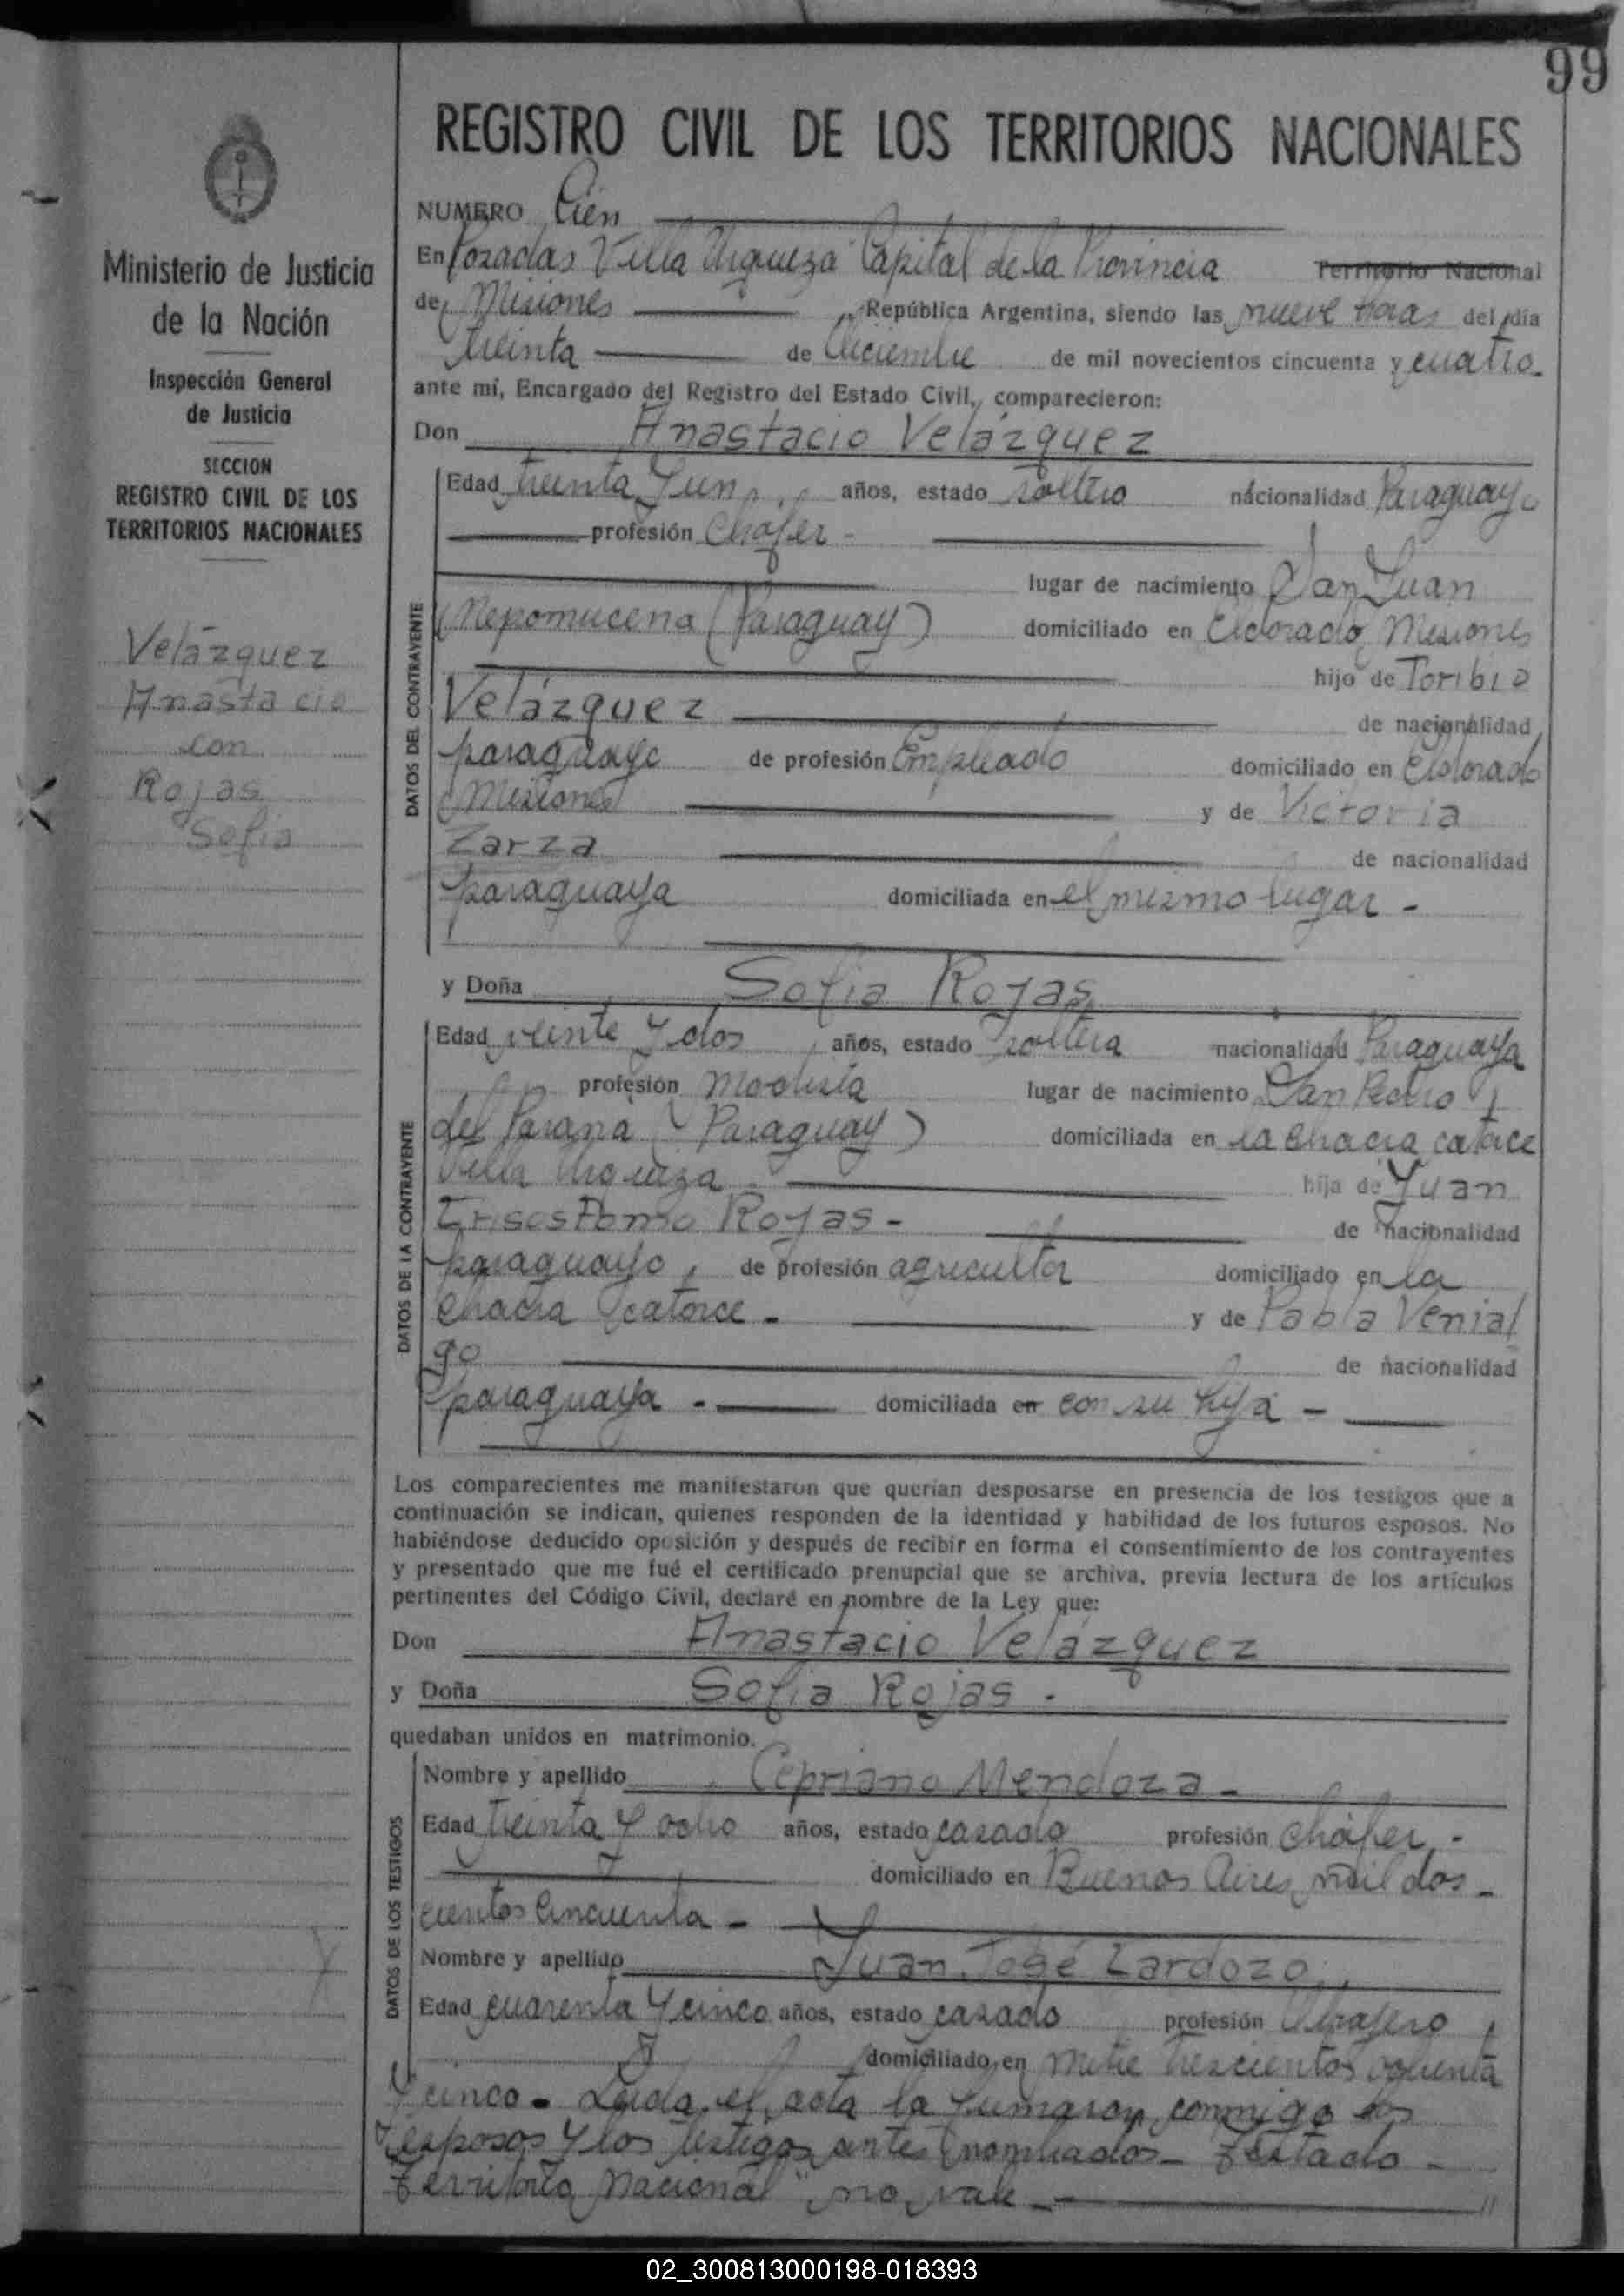 99
REGISTRO CIVIL DE LOS TERRITORIOS NACIONALES
Ministerio de Justicia
de la Nación
Inspección General
de Justicia
SECCION
REGISTRO CIVIL DE LOS
TERRITORIOS NACIONALES
Velázquez
Anastacio
con
Rojas
Sofia
NUMERO Cien
En Posadas Villa Urquiza Capital de la Provincia Territorio Nacional
de Misiones República Argentina, siendo las nueve horas del día
treinta de Diciembre de mil novecientos cincuenta y cuatro.
ante mí, Encargado del Registro del Estado Civil, comparecieron:
Don Anastacio Velázquez
DATOS DEL CONTRAYENTE
Edad treinta y un años, estado soltero nacionalidad Paraguayo
profesión Chofer -
lugar de nacimiento San Juan
Nepomucena (Paraguay) domiciliado en Eldorado, Misiones
hijo de Toribio
Velázquez de nacionalidad
paraguayo de profesión Empleado domiciliado en Eldorado
Misiones y de Victoria
Zarza de nacionalidad
paraguaya domiciliada en el mismo lugar -
y Doña Sofia Rojas
DATOS DE LA CONTRAYENTE
Edad veinte y dos años, estado soltera nacionalidad Paraguaya
profesión Modista lugar de nacimiento San Pedro
del Parana (Paraguay) domiciliada en la chacra catorce
Villa Urquiza. hija de Juan
Crisostomo Rojas - de nacionalidad
paraguayo, de profesión agricultor domiciliado en la
chacra catorce - y de Pabla Venial
go de nacionalidad
paraguaya - domiciliada en con su hija -
Los comparecientes me manifestaron que querían desposarse en presencia de los testigos que a
continuación se indican, quienes responden de la identidad y habilidad de los futuros esposos. No
habiéndose deducido oposición y después de recibir en forma el consentimiento de los contrayentes
y presentado que me fué el certificado prenupcial que se archiva, previa lectura de los artículos
pertinentes del Código Civil, declaré en nombre de la Ley que:
Don Anastacio Velázquez
y Doña Sofia Rojas.
quedaban unidos en matrimonio.
DATOS DE LOS TESTIGOS
Nombre y apellido Cepriano Mendoza -
Edad treinta y ocho años, estado casado profesión chofer. -
domiciliado en Buenos Aires mil dos -
cientos cincuenta -
Nombre y apellido Juan José Cardozo,
Edad cuarenta y cinco años, estado casado profesión
domiciliado en Mitre trescientos ochenta
y cinco - Leida el acta la firmaron conmigo los
esposos y los testigos antes nombrados - Testado -
Territorio Nacional" no vale -
02_300813000198-018393